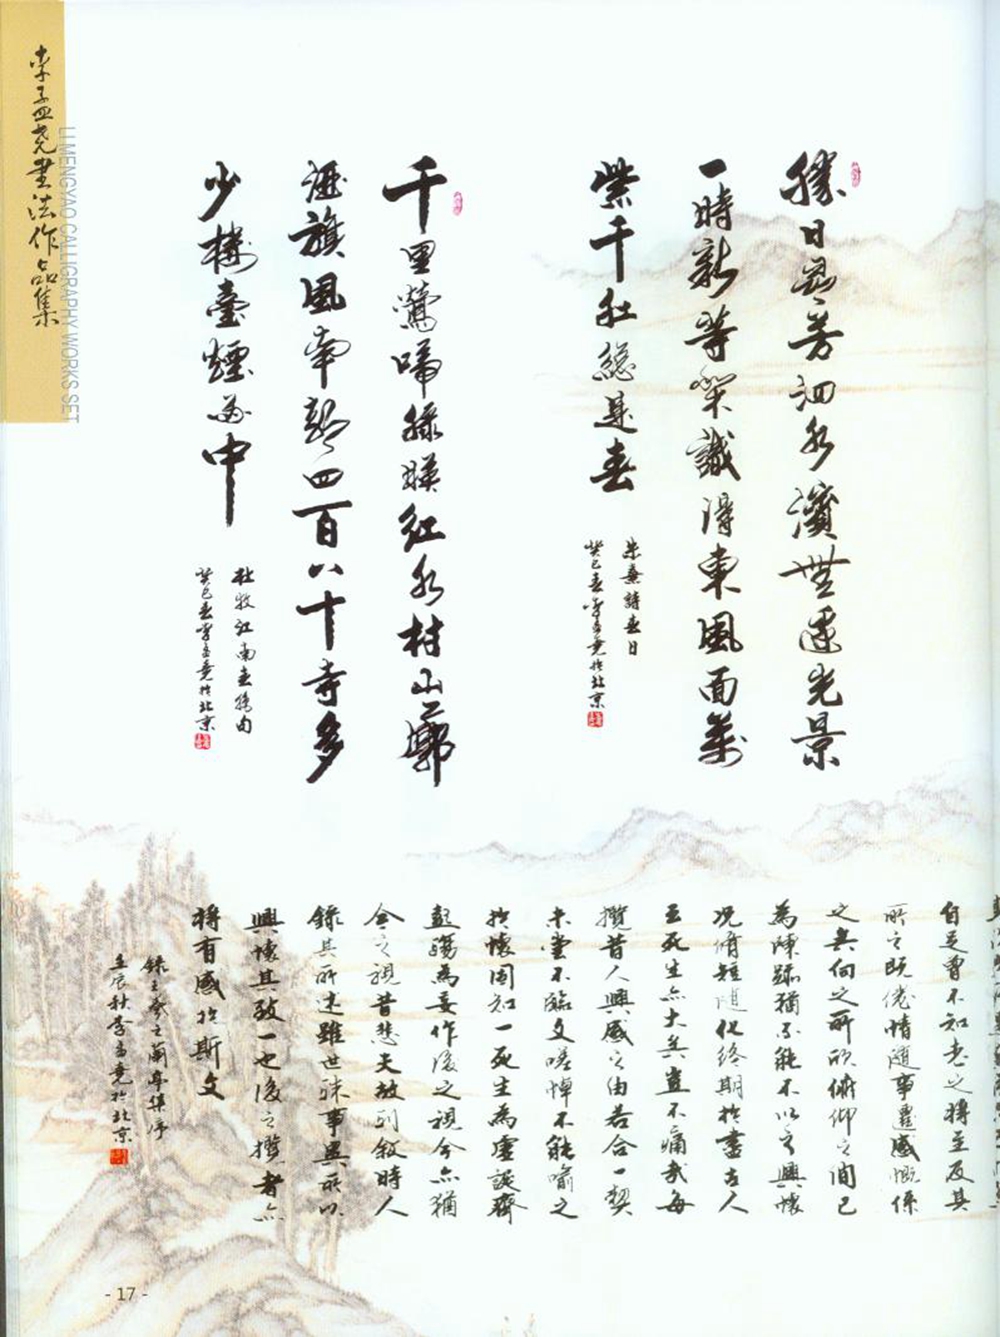 李孟尧書法作品集
LI MENGYAO CALLIGRAPHY WORKS SET
勝日尋芳泗水濱無邊光景
一時新等閑識得東風面萬
紫千紅總是春
朱熹詩春日
癸巳春李孟堯於北京
千里鶯啼綠暎紅水村山廓
酒旗風南朝四百八十寺多
少樓臺煙雨中
杜牧江南春絕句
癸巳春李孟堯於北京
自足曾不知老之將至及其
所之既倦情隨事遷感慨係
之矣向之所欣俯仰之間已
為陳跡猶不能不以之興懷
況脩短隨化終期於盡古人
云死生亦大矣豈不痛哉每
攬昔人興感之由若合一契
未嘗不臨文嗟悼不能喻之
於懷固知一死生為虛誕齊
彭殤為妄作後之視今亦猶
今之視昔悲夫故列敘時人
錄其所述雖世殊事異所以
興懷其致一也後之攬者亦
將有感於斯文
錄王羲之蘭亭集序
壬辰秋李孟堯於北京
- 17 -